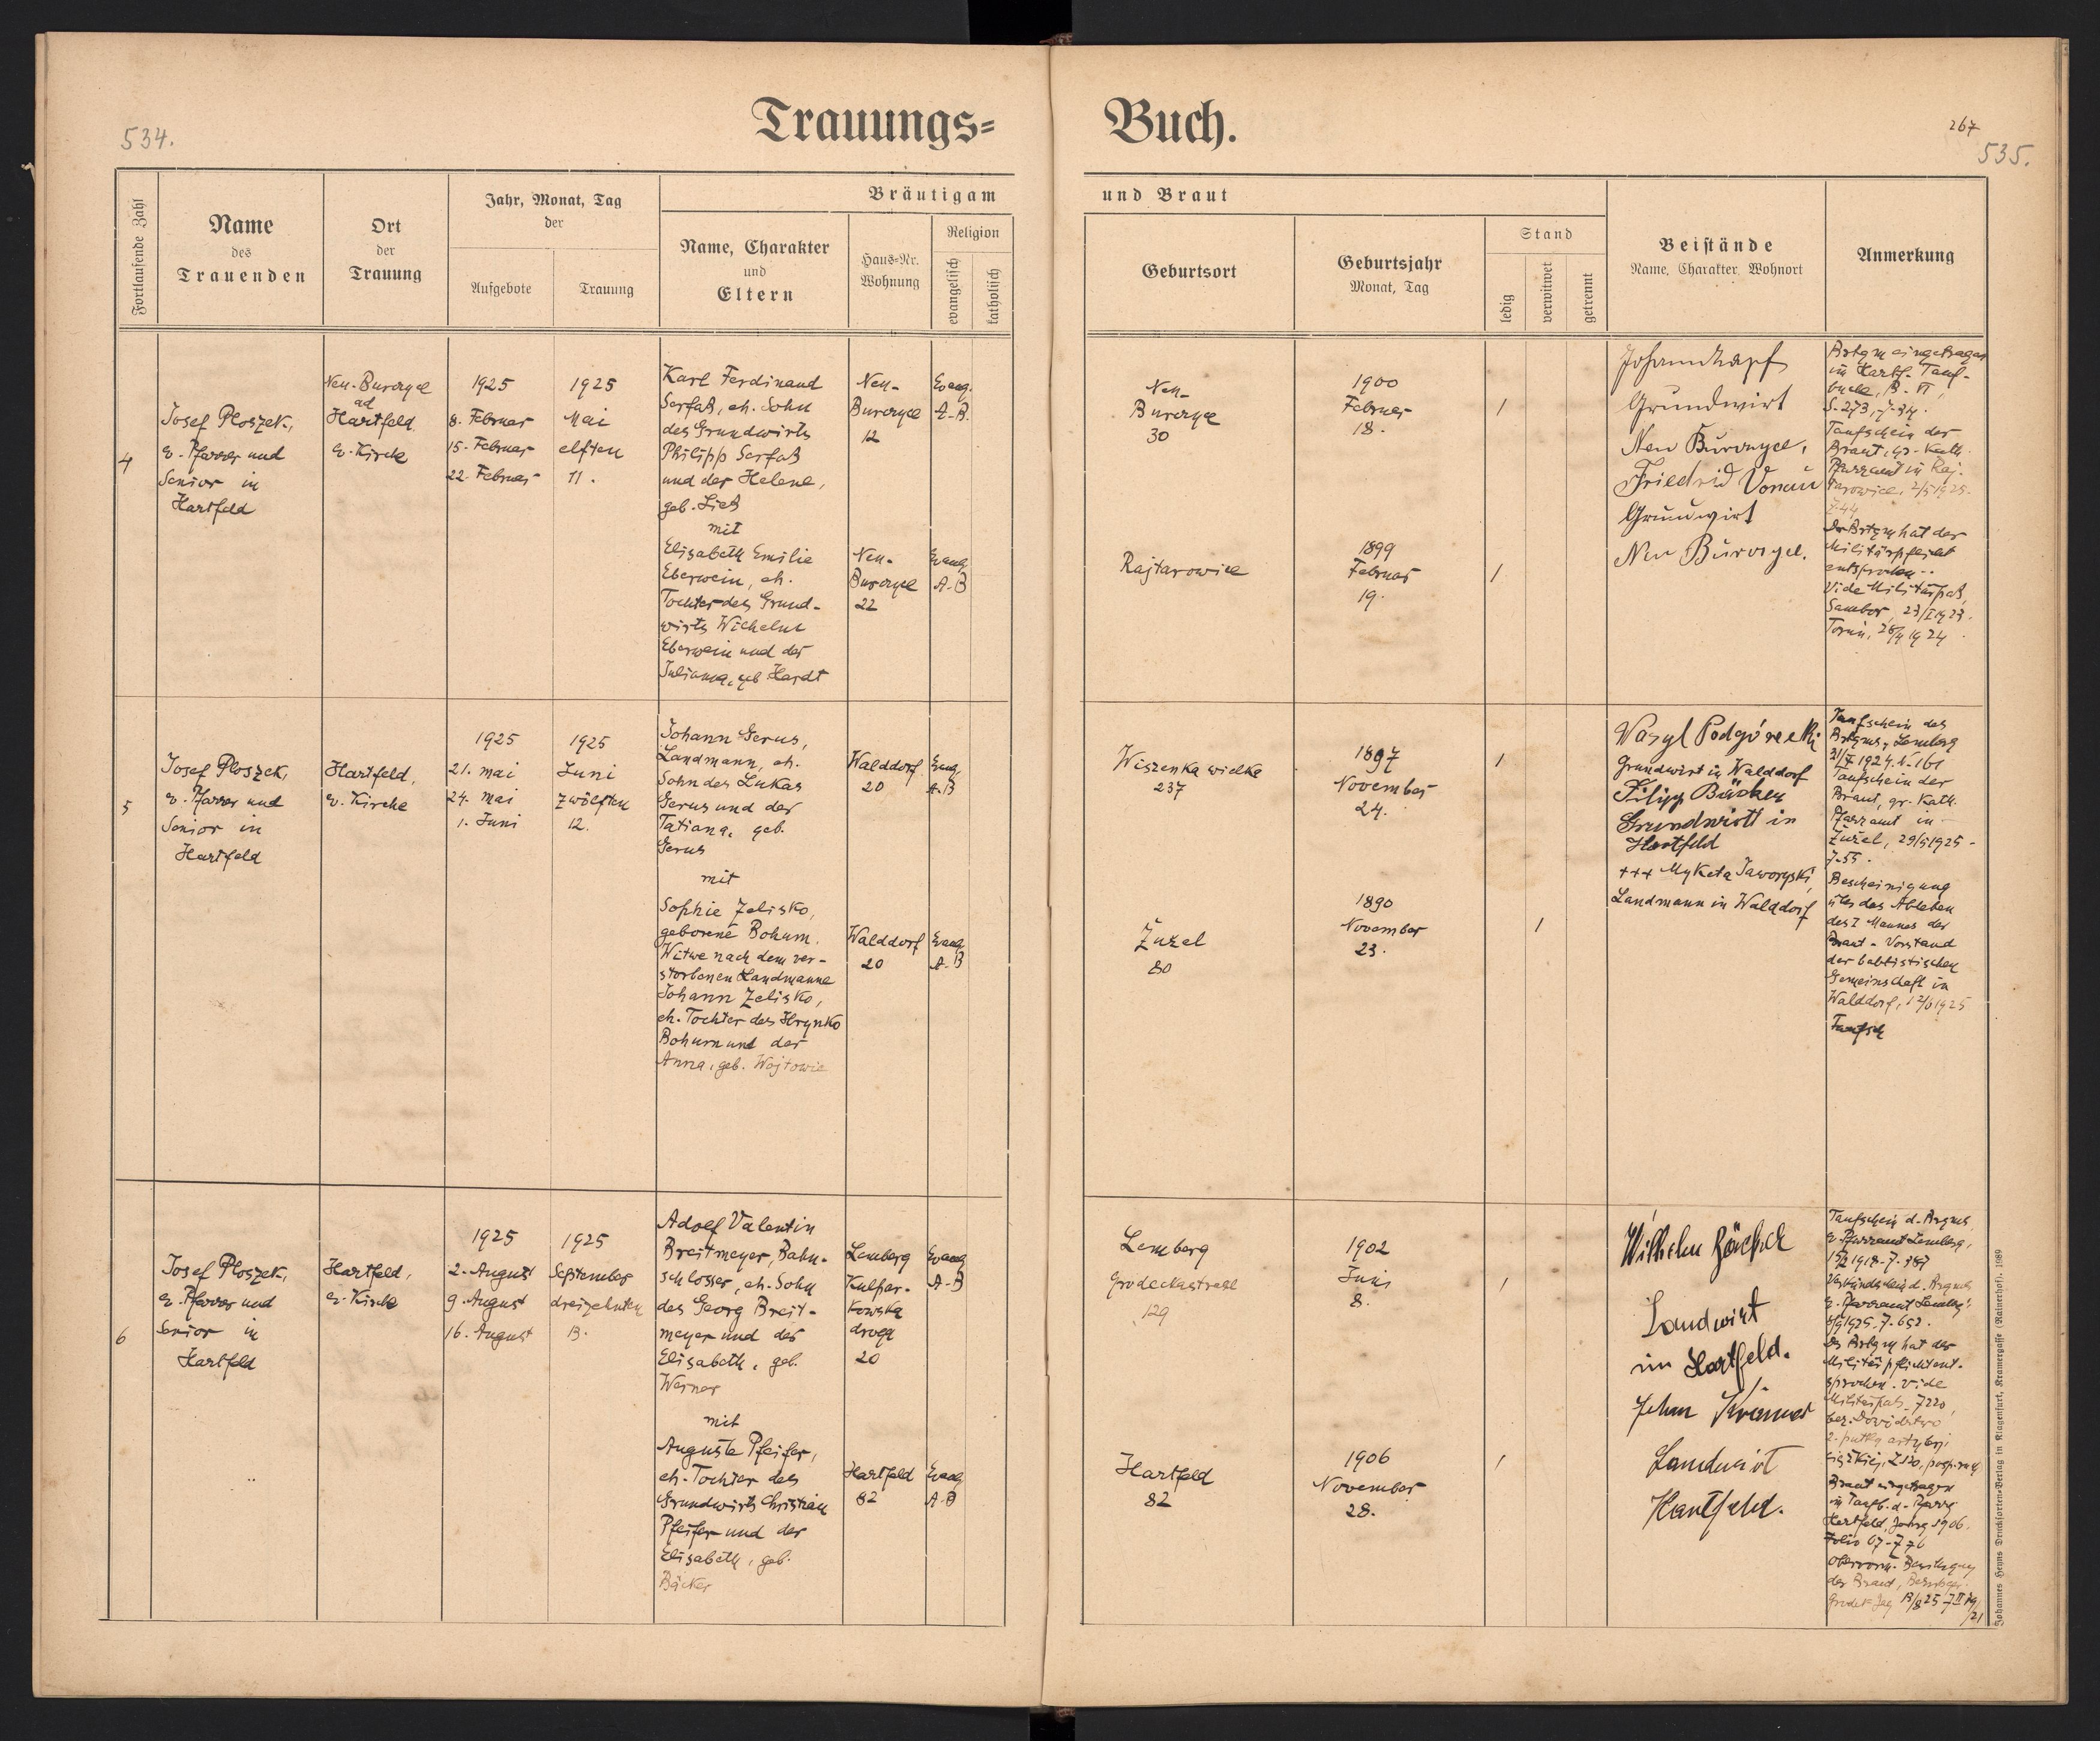 534.
Trauungs=
Buch.
267
535.
Fortlaufende Zahl
Name
des
Trauenden
Ort
der
Trauung
Jahr, Monat, Tag
der
Aufgebote
Trauung
Bräutigam
Name, Charakter
und
Eltern
Haus=Nr.
Wohnung
Religion
evangelisch
katholisch
und Braut
Geburtsort
Geburtsjahr
Monat, Tag
Stand
ledig
verwitwet
getrennt
Beistände
Name, Charakter, Wohnort
Anmerkung
4
Josef Ploszek,
e. Pfarrer und
Senior in
Hartfeld
Neu-Burczyce
ad
Hartfeld
e. Kirche
1925
8. Februar
15. Februar
22. Februar
1925
Mai
elften
11.
Karl Ferdinand
Serfaß, eh. Sohn
des Grundwirts
Philipp Serfaß
und der Helene,
geb. Ließ
mit
Elisabeth Emilie
Eberwein, eh.
Tochter des Grund-
wirts Wilhelm
Eberwein und der
Juliana, geb Hardt
Neu-
Burczyce
12
Neu-
Burczyce
22
Evang.
A.B.
Evang
A.B
Neu-
Burczyce
30
Rajtarowice
1900
Februar
18.
1899
Februar
19.
/
/
Grundwirt
Neu Burczyce,
Grundwirt
Neu Burczyce.
Brtgm eingetragen
in Hartf. Tauf-
buche, B. VI,
S. 273, Z. 34.
Taufschein der
Braut, gr. Kath.
Pfarramt in Raj-
tarowice, 2/5 1925.
Z. 44
Der Brtgm hat der
Militärpflicht
entsprochen.
Vide Militärpaß,
Sambor, 23/I 1923.
5
Josef Ploszek,
e. Pfarrer und
Senior in
Hartfeld
Hartfeld,
e. Kirche
1925
21. Mai
24. Mai
1. Juni
1925
Juni
zwölften
12.
Johann Gerus,
Landmann, eh.
Sohn des Lukas
Gerus und der
Tatiana, geb.
Gerus
mit
Sophie Zelisko,
geborene Bohum.
Witwe nach dem ver-
storbenen Landmanne
Johann Zelisko,
eh. Tochter des Hrynko
Bohum und der
Anna, geb. Wojtowic
Walddorf
20
Walddorf
20
Evang
A.B
Evang
A.B
Wiszenka wielka
237
Żuzel
80
1897
November
24.
1890
November
23.
/
/
Wasyl Podgórecki
Grundwirt in Walddorf
Filipp Bäcker
Grundwirtt in
Hartfeld
+++ Myketa Jaworyski
Landmann in Walddorf
Taufschein des
Brtgms, Lemberg
Taufschein der
Braut, gr. Kath.
Pfarramt in
Żużel, 29/5 1925 -
Z. 55.
Bescheinigung
über das Ableben
des I Mannes der
Braut - Vorstand
der babtistischen
Gemeinschaft in
Walddorf,
Taufsch
6
Josef Ploszek,
e. Pfarrer und
Senior in
Hartfeld
Hartfeld,
e. Kirche
1925
2. August
9. August
16. August
1925
September
dreizehnten
13.
Adolf Valentin
Breitmeyer, Bahn-
schlosser, eh. Sohn
des Georg Breit-
meyer und der
Elisabeth, geb.
Werner
mit
Auguste Pfeifer,
eh. Tochter des
Grundwirts Christian
Pfeifer und der
Elisabeth, geb.
Bäcker
Lemberg
Kulpar-
kowska
droga
20
Hartfeld
82
Evang
A.B
Evang
A.B
Lemberg
129
Hartfeld
82
1902
Juni
8.
1906
November
28.
/
/
Wilhelm Bäcker
Landwirt
in Hartfeld.
Landwirt
Hartfeld.
Taufschein d. Brtgms,
e. Pfarramt Lemberg,
Verkündschein d. Brtgms
e. Pfarramt Lemberg,
Der Brtgm hat der
Militärpflicht ent-
sprochen. Vide
Militärpaß
Braut eingetragen
in Taufb. d. Pfarre
Hartfeld, Jahrg 1906.
Folio 67-Z 76
der Braut,
Johannes Heyns Drucksorten=Verlag in Klagenfurt, Kramergasse (Rainerhof). 1989